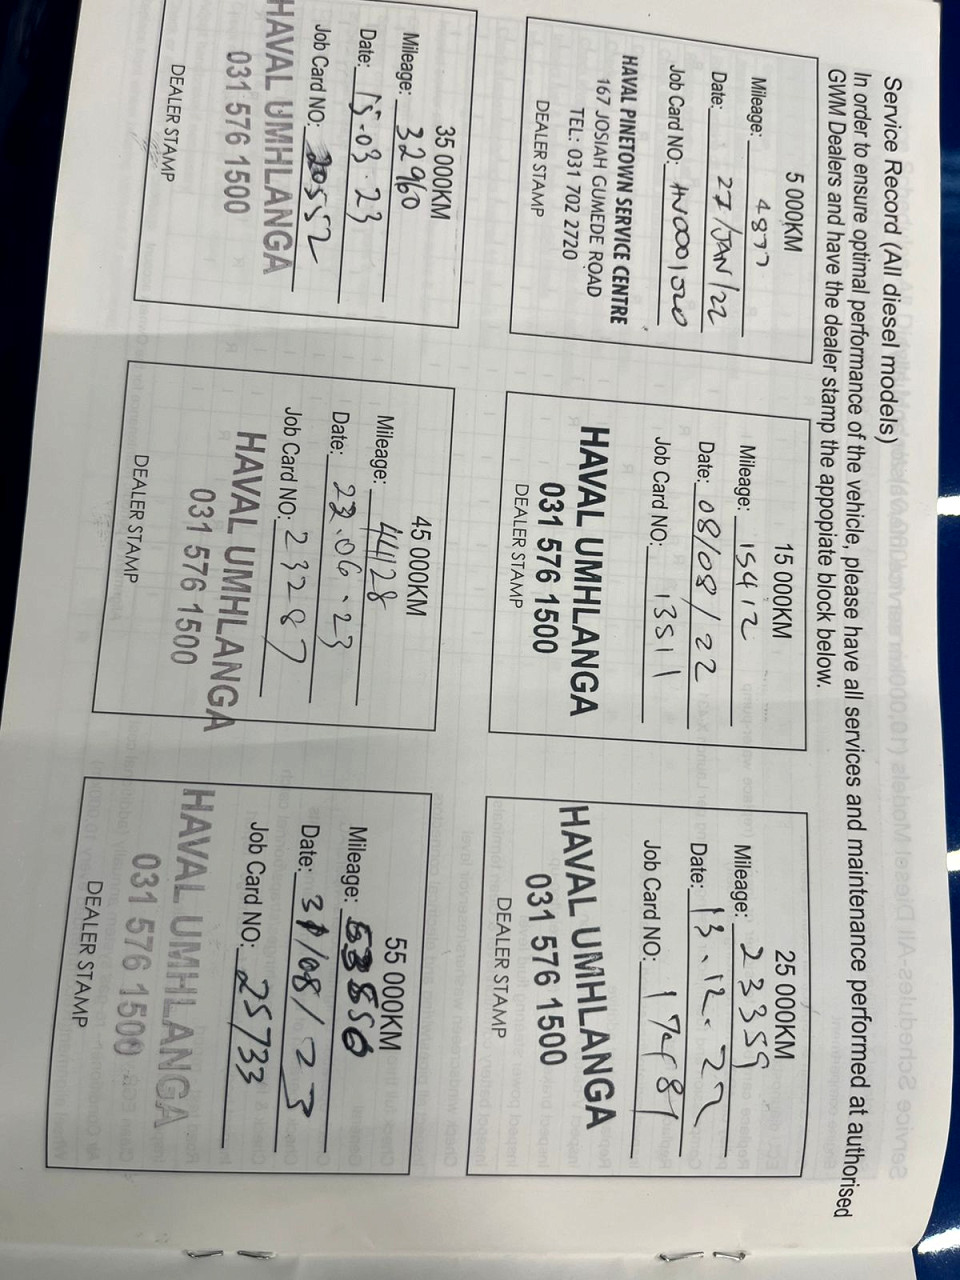 Service Record (All diesel models)
In order to ensure optimal performance of the vehicle, please have all services and maintenance performed at authorised
GWM Dealers and have the dealer stamp the appopiate block below.
5 000KM
Mileage: 4877
Date: 27/JAN/22
Job Card NO: HN0001020
HAVAL PINETOWN SERVICE CENTRE
167 JOSIAH GUMEDE ROAD
TEL: 031 702 2720
DEALER STAMP
15 000KM
Mileage: 15412
Date: 08/08/22
Job Card NO: 13511
HAVAL UMHLANGA
031 576 1500
DEALER STAMP
25 000KM
Mileage: 23359
Date: 13.12.22
Job Card NO:
HAVAL UMHLANGA
031 576 1500
DEALER STAMP
35 000KM
Mileage: 32960
Date: 15.03.23
Job Card NO: 20552
HAVAL UMHLANGA
031 576 1500
DEALER STAMP
45 000KM
Mileage: 44128
Date: 22.06.23
Job Card NO: 23287
HAVAL UMHLANGA
031 576 1500
DEALER STAMP
55 000KM
Mileage:
Date: 31/08/23
Job Card NO: 25733
HAVAL UMHLANGA
031 576 1500
DEALER STAMP